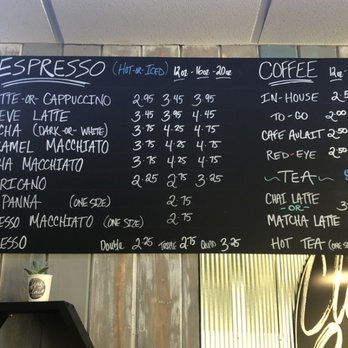 ESPRESSO (HOT-OR-ICED) 12oz - 16oz - 20oz
TTE-OR-CAPPUCCINO 2.95 3.45 3.95
EVE LATTE 3.45 3.95 4.45
CHA (DARK-OR-WHITE) 3.75 4.25 4.75
RAMEL MACCHIATO 3.75 4.25 4.75
HA MACCHIATO 3.75 4.25 4.75
RICANO 2.25 2.75 3.25
PANNA (ONE SIZE) 2.75
ESSO MACCHIATO (ONE SIZE) 2.75
ESSO Double 2.25 Triple 2.75 Quad 3.25
COFFEE 12oz
IN-HOUSE 2.5
TO-GO 2.00
CAFE AULAIT 2.50
RED-EYE 2.50
~TEA~
CHAI LATTE
-OR- 3
MATCHA LATTE
HOT TEA (ONE